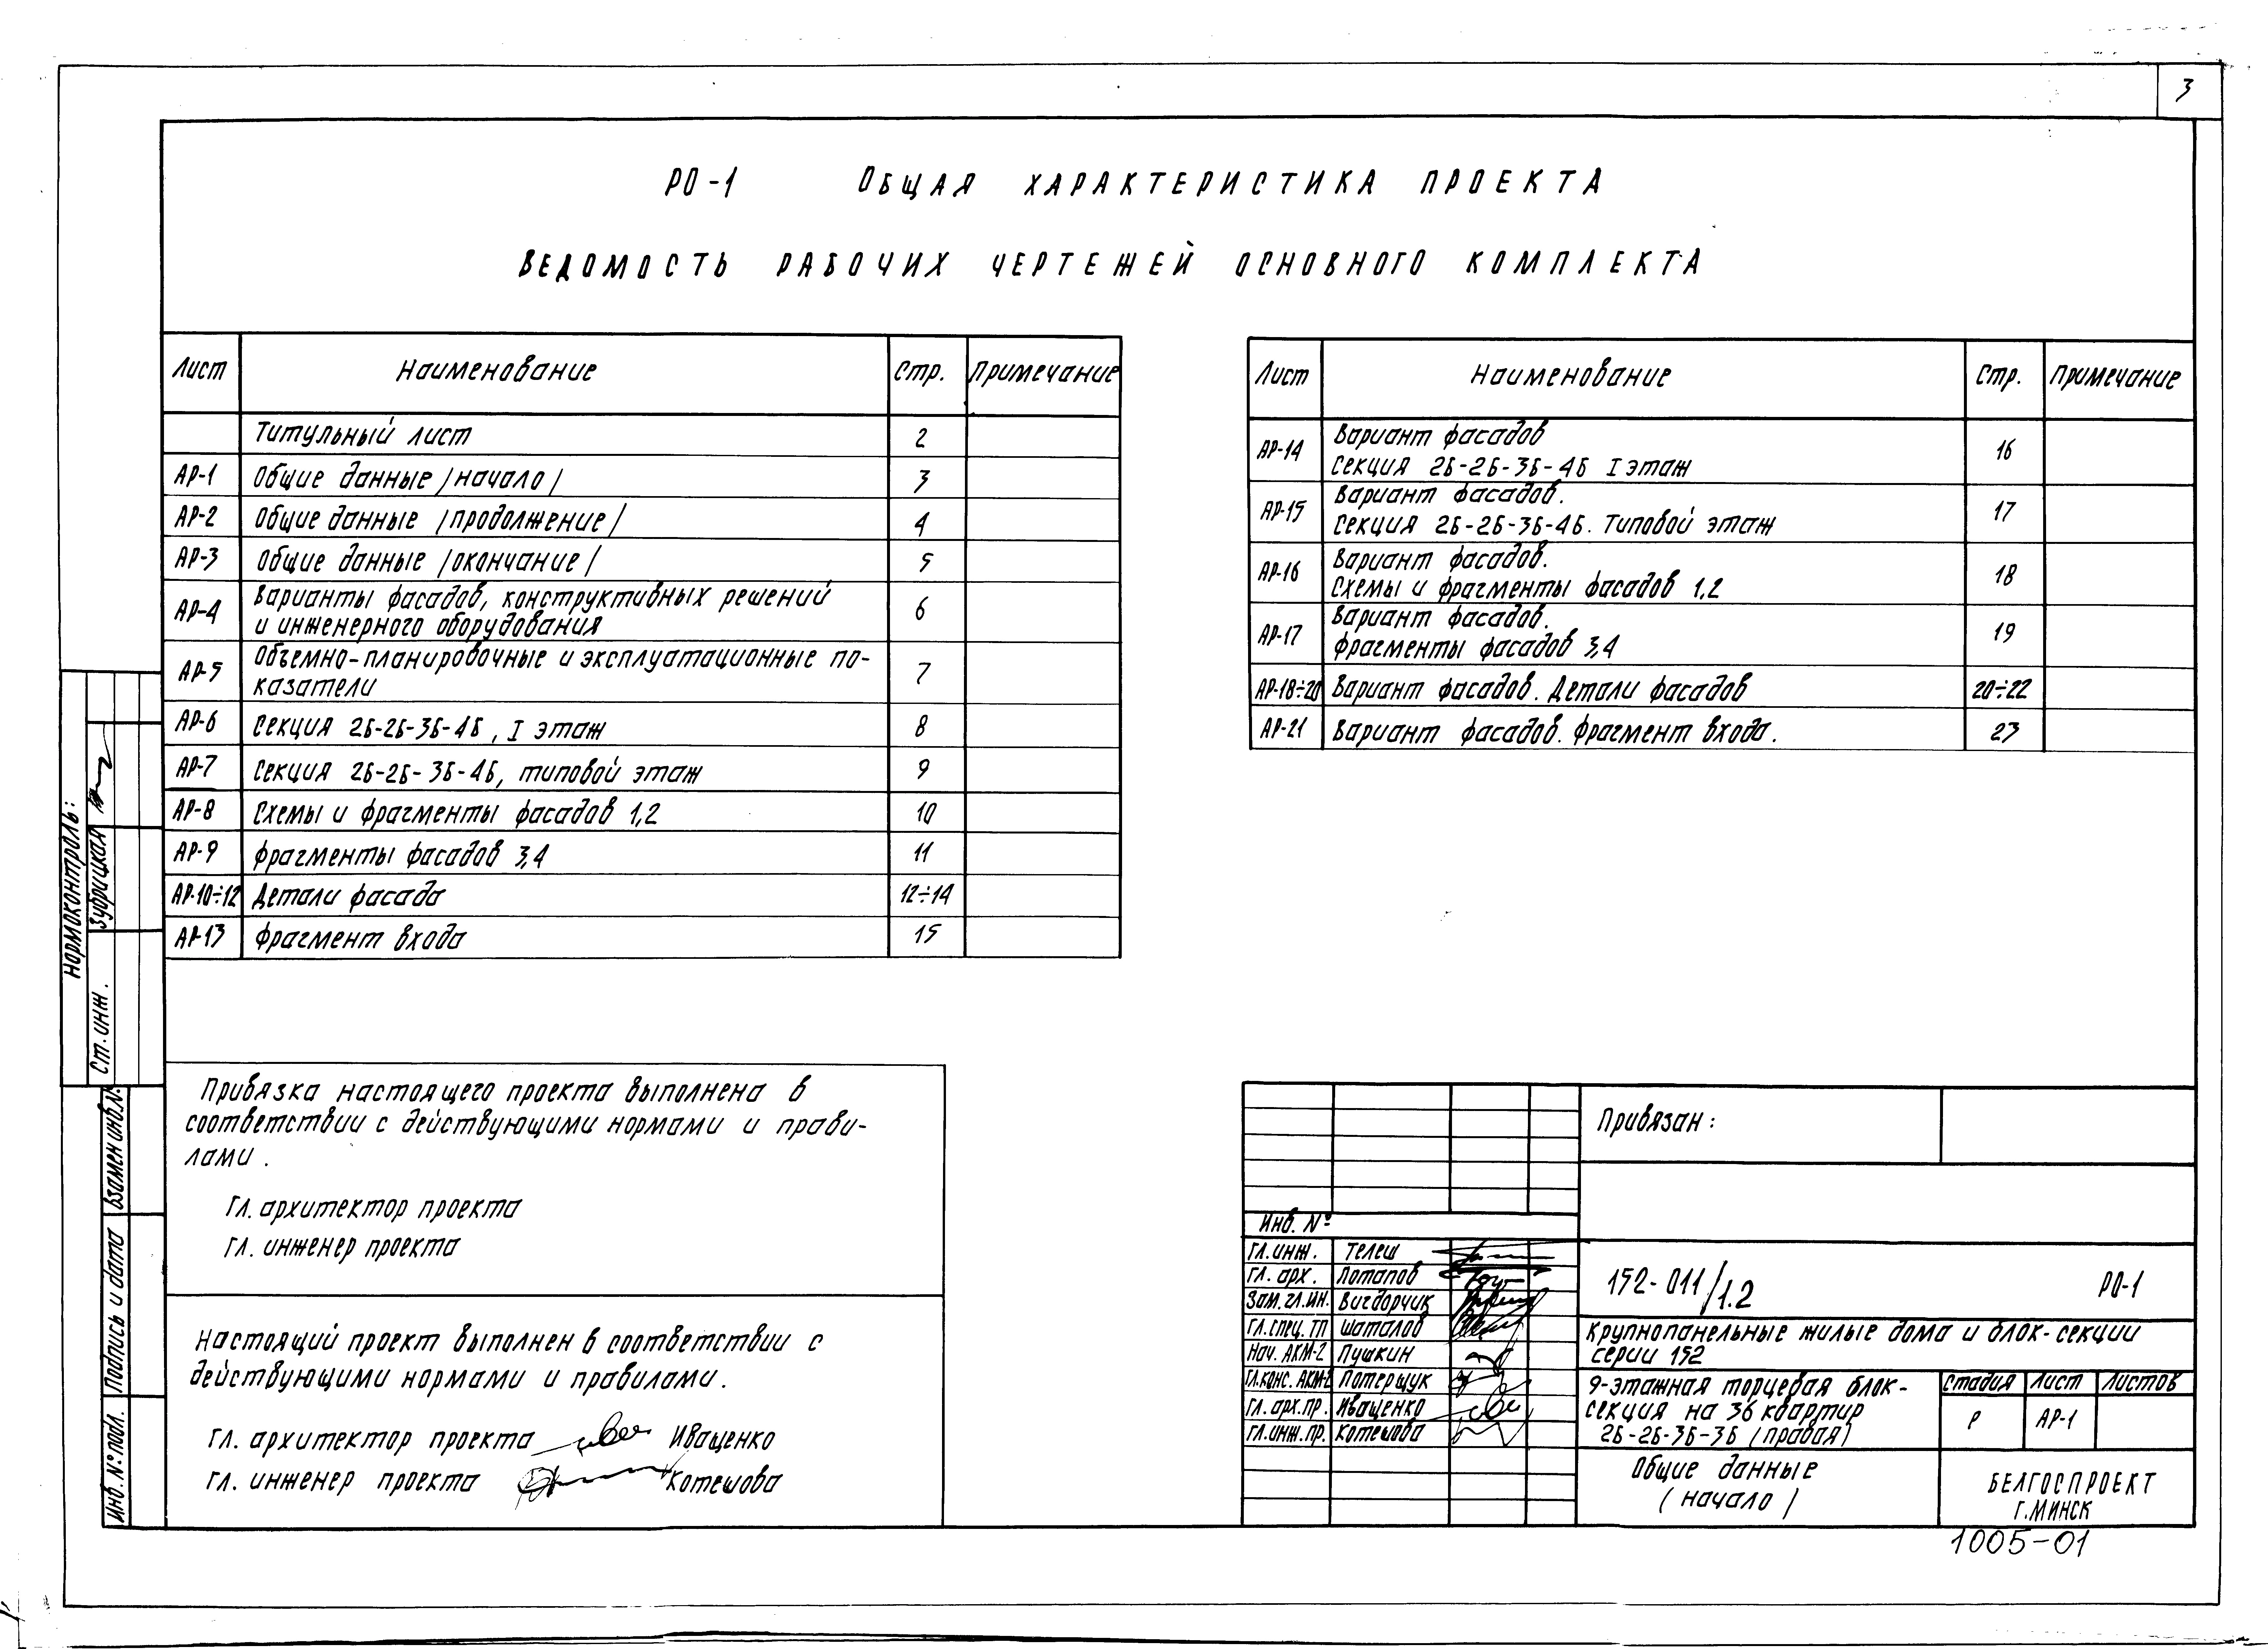 3
РО-1 Общая характеристика проекта
Ведомость рабочих чертежей основного комплекта
Лист Наименование Стр. Примечание
Титульный лист 2
АР-1 Общие данные /начало/ 3
АР-2 Общие данные /продолжение/ 4
АР-3 Общие данные /окончание/ 5
АР-4 Варианты фасадов, конструктивных решений
и инженерного оборудования 6
АР-5 Объемно-планировочные и эксплуатационные по-
казатели 7
АР-6 Секция 2Б-2Б-3Б-4Б, I этаж 8
АР-7 Секция 2Б-2Б-3Б-4Б, типовой этаж 9
АР-8 Схемы и фрагменты фасадов 1,2 10
АР-9 Фрагменты фасадов 3,4 11
АР-10÷12 Детали фасада 12÷14
АР-13 Фрагмент входа 15
Лист Наименование Стр. Примечание
АР-14 Вариант фасадов
Секция 2Б-2Б-3Б-4Б I этаж 16
АР-15 Вариант фасадов.
Секция 2Б-2Б-3Б-4Б. Типовой этаж 17
АР-16 Вариант фасадов.
Схемы и фрагменты фасадов 1,2 18
АР-17 Вариант фасадов.
Фрагменты фасадов 3,4 19
АР-18÷20 Вариант фасадов. Детали фасадов 20÷22
АР-21 Вариант фасадов. Фрагмент входа. 23
Нормоконтроль:
Ст. инж. Зубрицкая
Взамен инв.№
Подпись и дата
Инв. № подл.
Привязка настоящего проекта выполнена в
соответствии с действующими нормами и прави-
лами.
Гл. архитектор проекта
Гл. инженер проекта
Настоящий проект выполнен в соответствии с
действующими нормами и правилами.
Гл. архитектор проекта Иващенко
Гл. инженер проекта Котешова
Привязан:
Инв. №
Гл. инж. Телеш
Гл. арх. Потапов
Зам. гл. ин. Вигдорчик
Гл. спец. ТП Шаталов
Нач. АКМ-2 Пушкин
Гл. конс. АКМ-2 Потерщук
Гл. арх. пр. Иващенко
Гл. инж. пр. Котешова
152-011/1.2 РО-1
Крупнопанельные жилые дома и блок-секции
серии 152
9-этажная торцевая блок-
секция на 36 квартир
2Б-2Б-3Б-3Б (правая)
Стадия Лист Листов
Р АР-1
Общие данные
(начало)
БЕЛГОСПРОЕКТ
г. Минск
1005-01